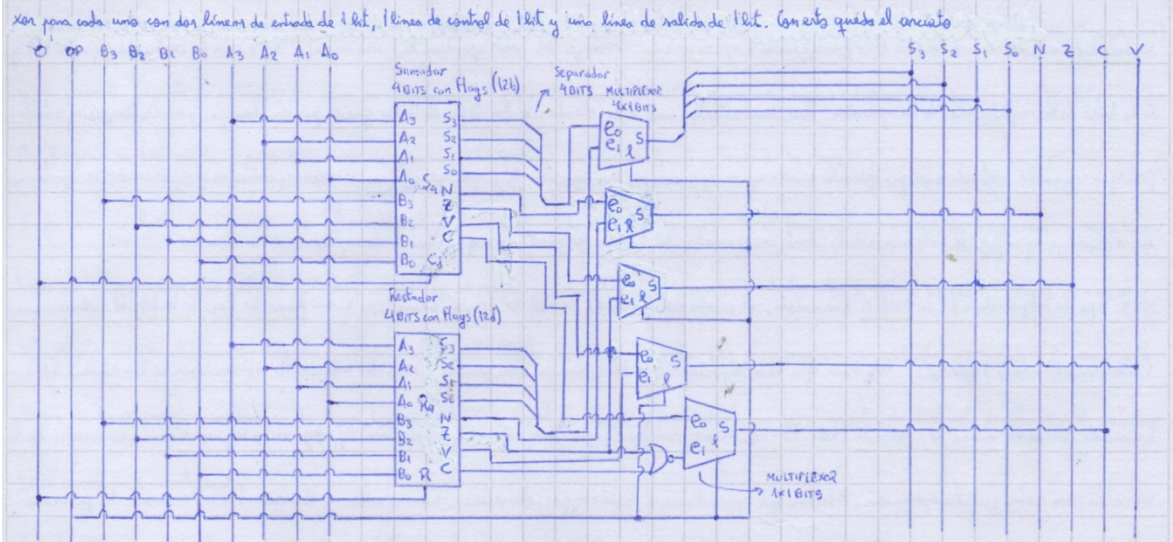 xor para cada uno con dos líneas de entrada de 1 bit, 1 línea de control de 1 bit y una línea de salida de 1 bit. Con esto queda el circuito
0 OP B3 B2 B1 B0 A3 A2 A1 A0
S3 S2 S1 S0 N Z C V
Sumador
4BITS con Flags (12b)
Separador
4BITS
MULTIPLEXOR
4x1BITS
A3 S3
A2 S2
A1 S1
A0 S0
N
B3 Z
B2 V
B1 C
B0
e0 S
e1 l
e0 S
e1 l
e0 S
e1 l
Restador
4BITS con Flags (12d)
A3 S3
A2 S2
A1 S1
A0 S0
B3 N
B2 Z
B1 V
B0 R C
e0 S
e1 l
e0 S
e1 l
MULTIPLEXOR
1x1BITS